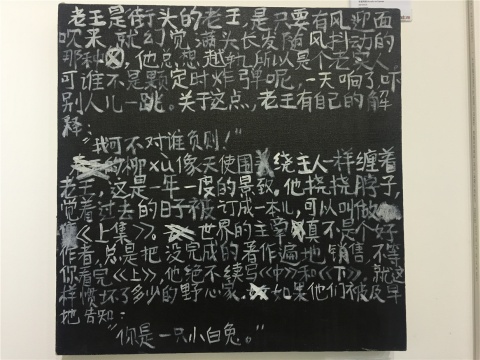 老王是街头的老王,是只要有风迎面
吹来,就幻觉满头长发随风抖动的
那种,他总想越轨所以是个老实人,
可谁不是颗定时炸弹呢,一天响了吓
别人儿一跳。关于这点,老王有自己的解
释:
“我可不对谁负则!”
的柳xù像天使围绕主人一样缠着
老王,这是一年一度的景致。他挠挠脖子,
觉着过去的日子被订成一本儿,可以叫做
《上集》。世界的主宰真不是个好
作者,总是把没完成的著作遍地销售,不等
你看完《上》,他绝不续写《中》和《下》,就这
样惯坏了多少的野心家,如果他们被及早
地告知:
“你是一只小白兔。”